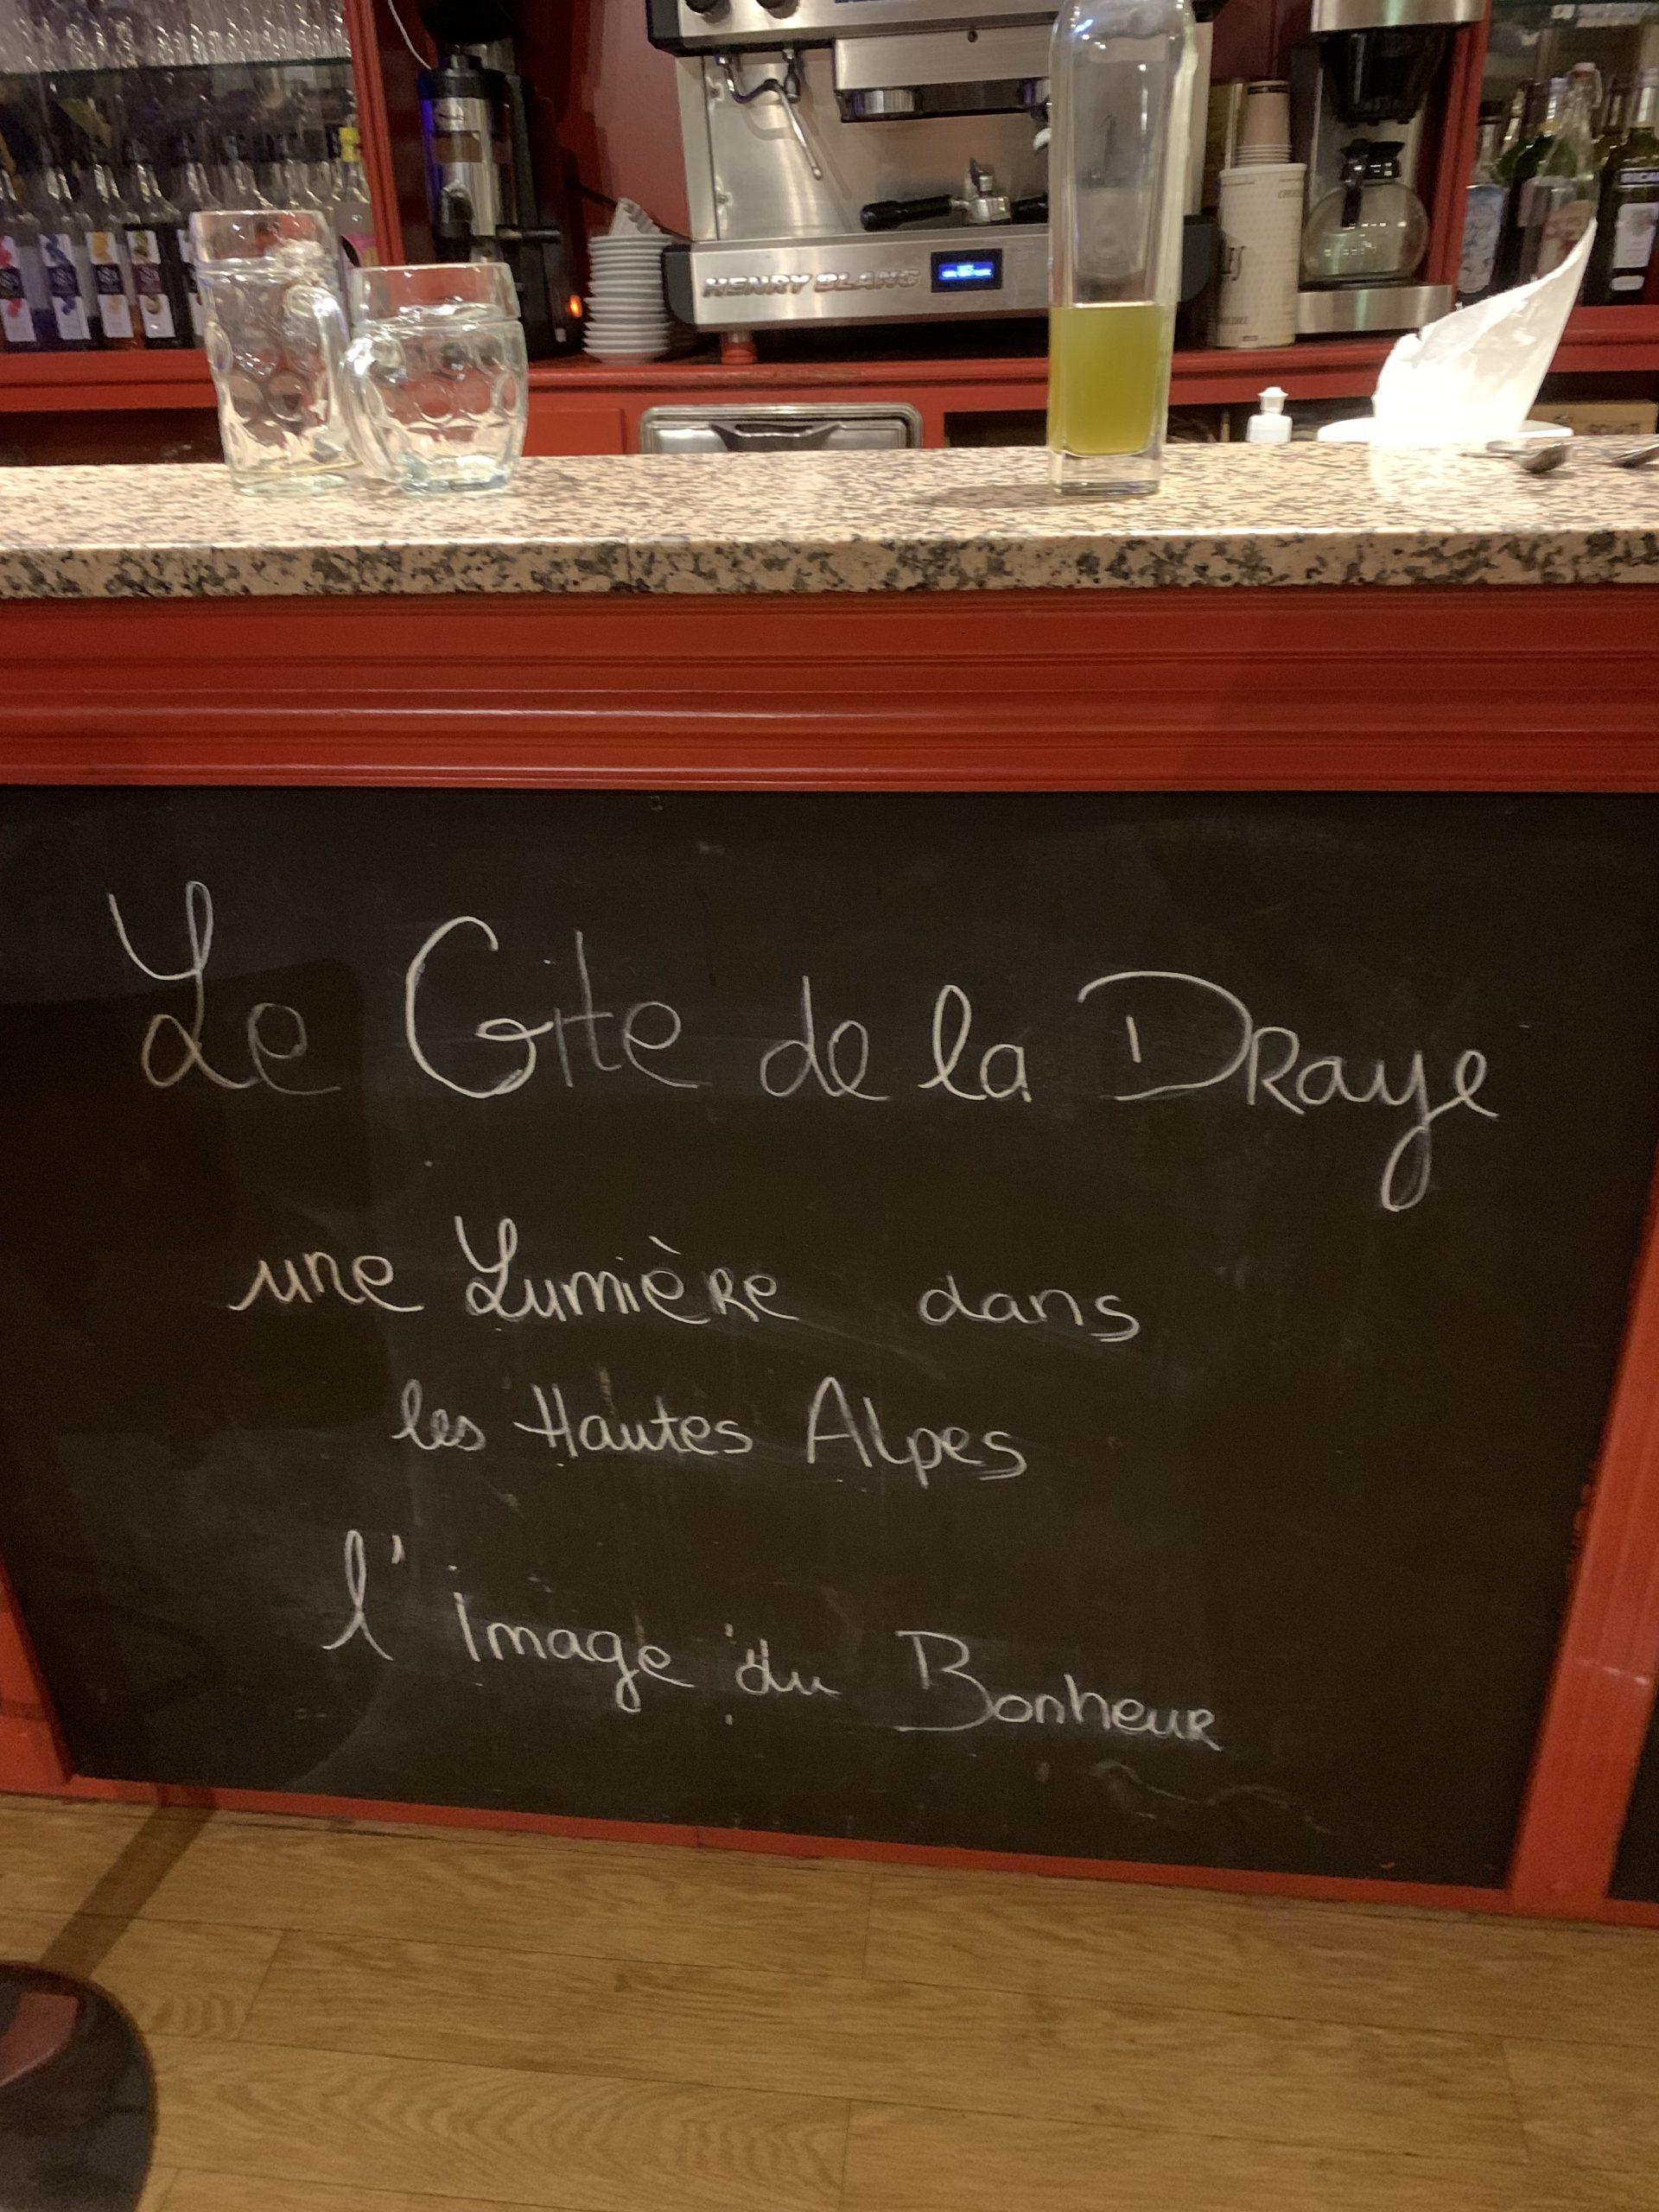 HENRY BLANC
Le Gite de la DRaye
une LumièRe dans
les Hautes Alpes
l'Image du BonheuR